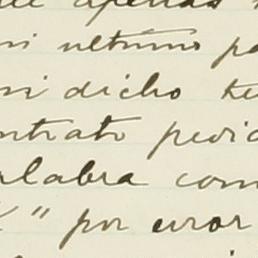 apenas
mi ultimo pa
ni dicho te
ntrato pedid
alabra com
" por error